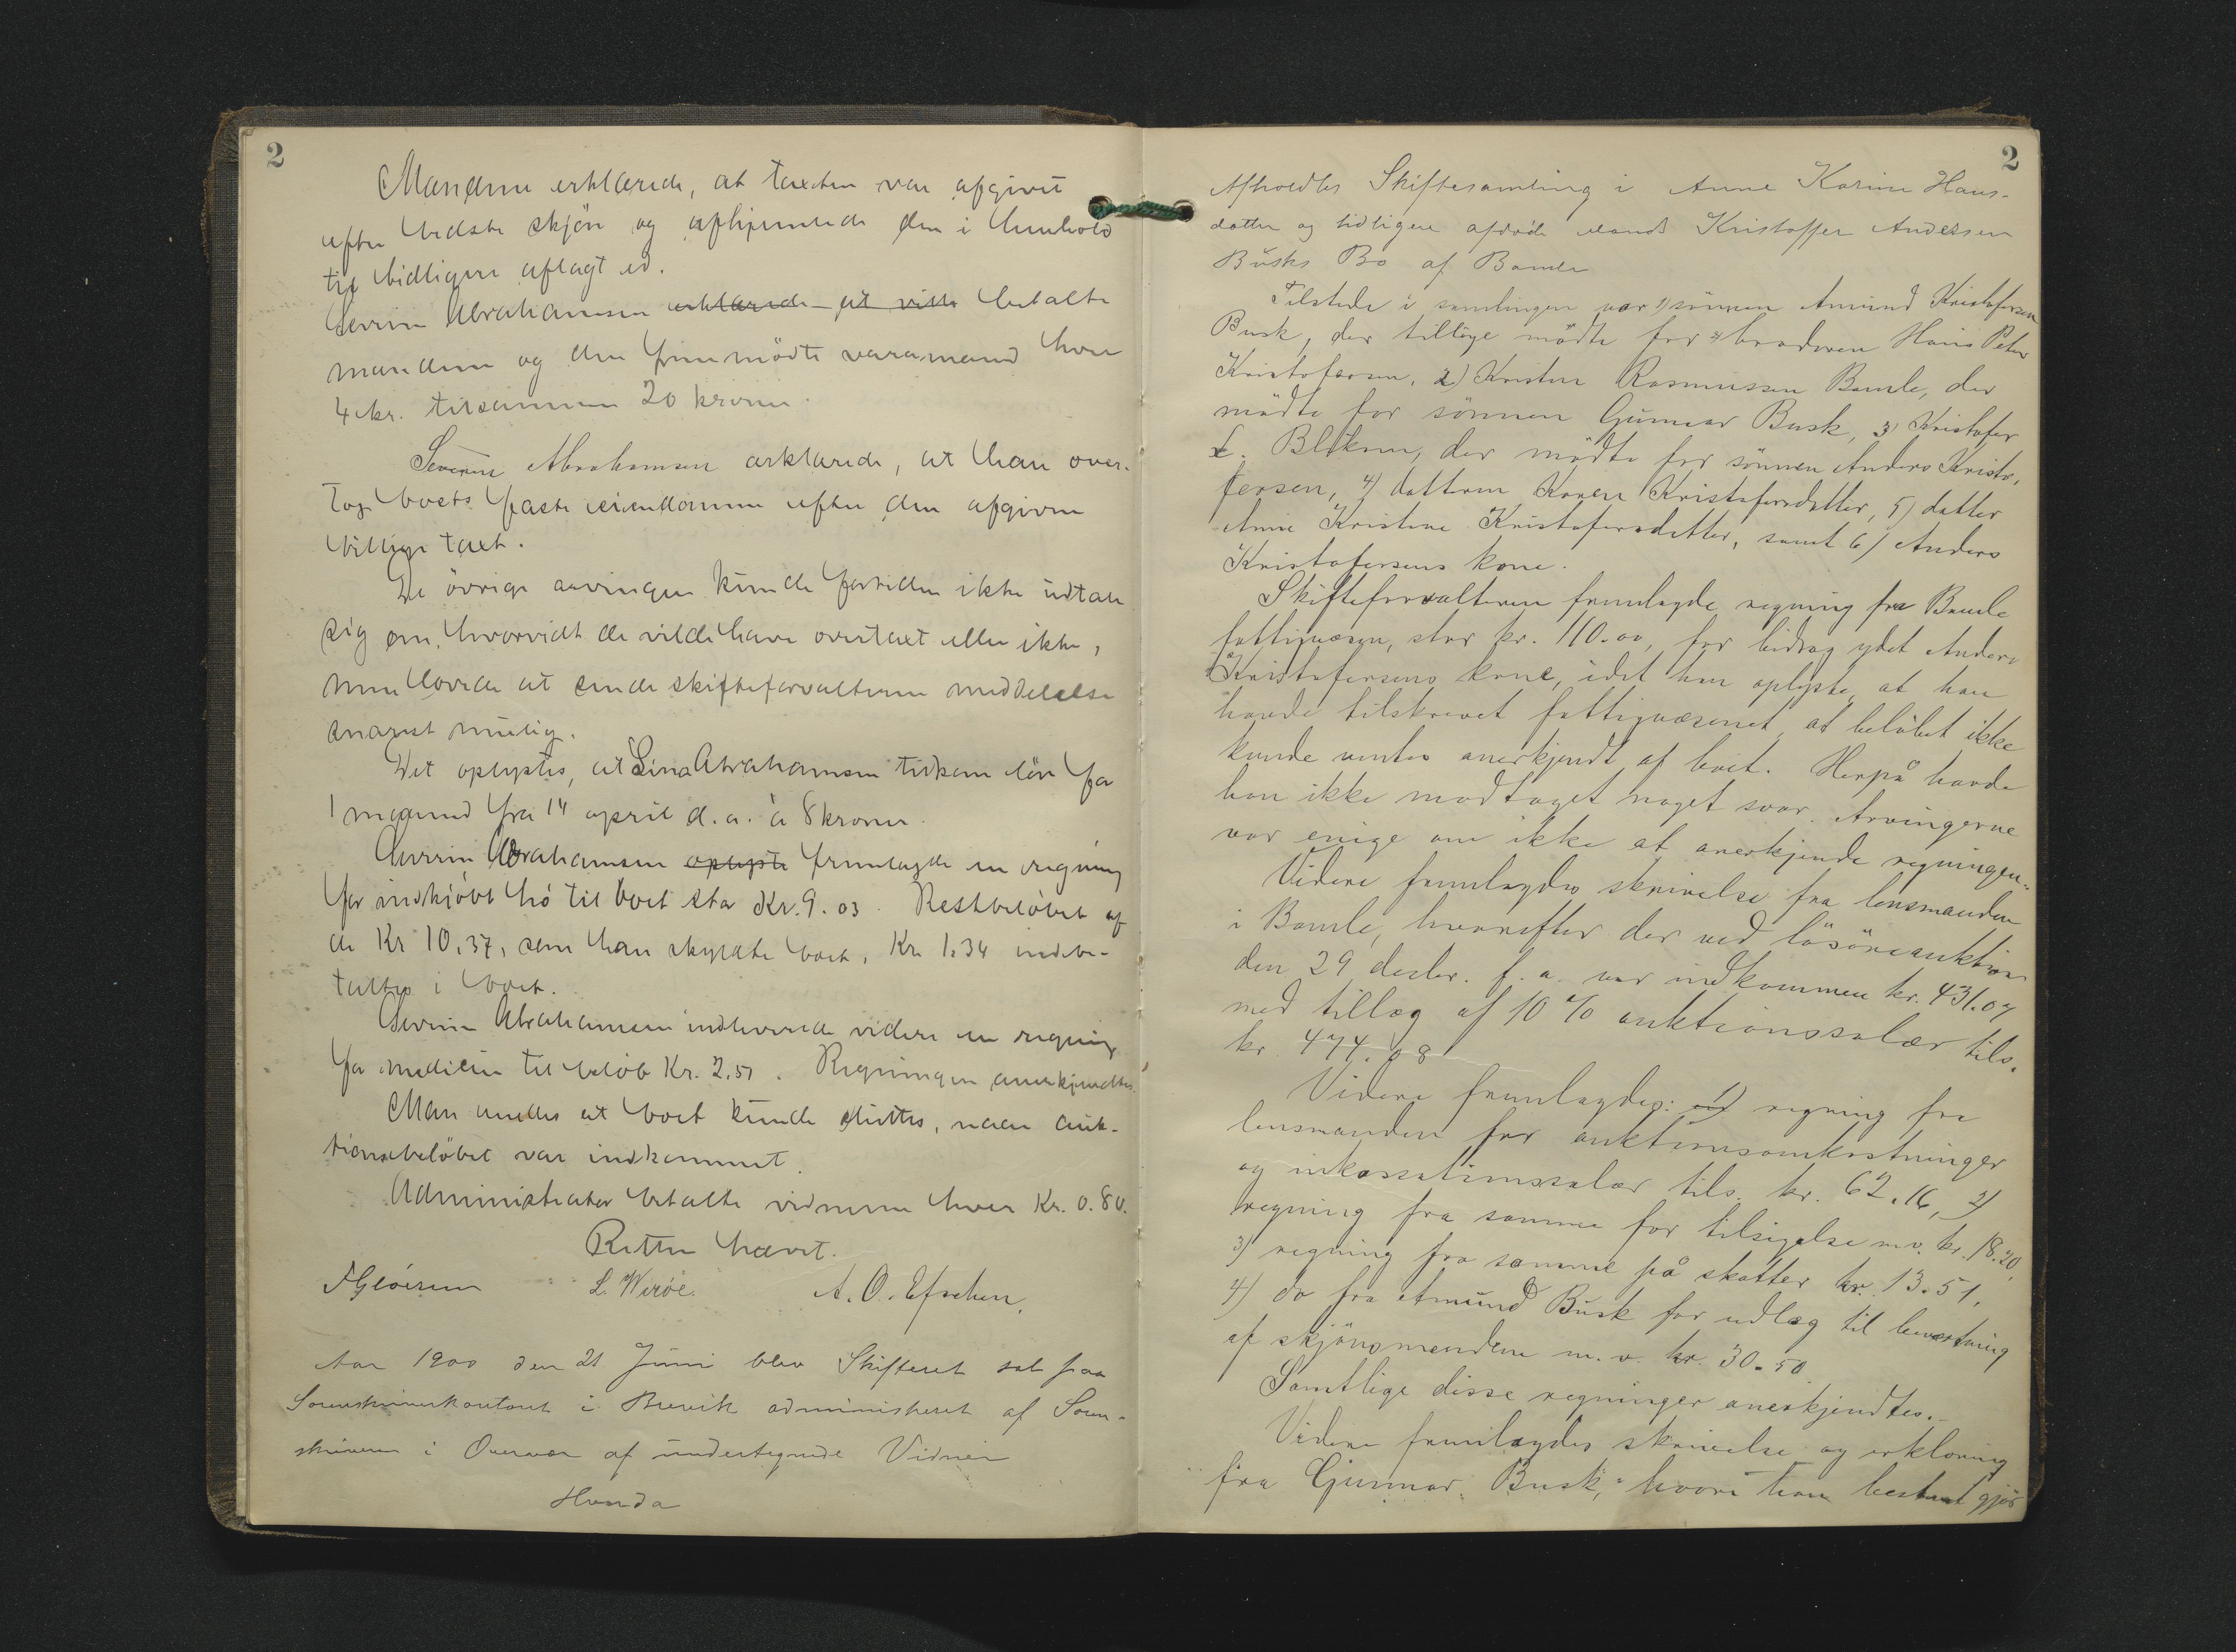 2
Mændene erklærede, at taxten var afgivet
efter bedste skjön og afhjemlede den i henhold
til tidligere aflagt ed.
Severin Abrahamsen erklærede at ville betalte
mændene og den fremmödte varamand hver
4 kr. tilsammen 20 kroner.
Severin Abrahamsen erklærede, at han over-
tog boets faste eiendomme efter den afgivne
billige taxt.
De övrige arvinger kunde fortiden ikke udtale
sig om, hvorvidt de vilde have overtaxt eller ikke,
men lovede at sende skifteforvalteren meddelelse
snarest mulig.
Det oplystes, at Lina Abrahamsen tilkom lön for
1 maaned fra 14 april d. a. à 8 kroner.
Severin Abrahamsen oplyste fremlagde en regning
for indkjöbt hö til boet stor Kr. 9.03. Restbelöbet af
de Kr 10,37, som han skyldte boet, Kr. 1.34 indbe-
taltes i boet.
Severin Abrahamsen indleverede videre en regning
for medicin til belöb Kr. 2.51. Regningen anerkjendtes.
Man enedes at boet kunde sluttes, naar auk-
tionsbelöbet var indkommet.
Administrator betalte vidnerne hver Kr. 0.80.
Retten hævet.
L. Weröe. A. O.
Aar 1900 den 21 Juni blev Skifteret sat paa
Sorenskriverkontoret i Brevik administreret af Soren-
skriveren i Overvær af undertegnede Vidner
Hvorda
2
Afholdtes Skiftesamling i Anne Karine Hans-
datter og tidligere afdöde Mands Kristoffer Andersen
Busks Bo af Bamle
Tilstede i samlingen var 1) sönnen Amund Kristofersen
Busk, der tillige mödte for broderen Hans Peter
Kristofersen, 2) Kristen Rasmussen Bamle, der
mödte for sönnen Gunnar Busk, 3) Kristofer
der mödte for sönnen Anders Kristo-
fersen, 4) datteren Karen Kristofersdatter, 5) datter
Anne Kristine Kristofersdatter, samt 6) Anders
Kristofersens kone.
Skifteforvalteren fremlagde regning fra Bamle
fattigvæsen, stor kr. 110.00, for bidrag ydet Anders
Kristofersens kone, idet han oplyste, at han
havde tilskrevet fattigvæsenet at belöbet ikke
kunde ventes anerkjendt af boet. Herpå havde
han ikke modtaget noget svar. Arvingerne
var enige om ikke at anerkjende regningen.
Videre fremlagdes skrivelse fra lensmanden
i Bamle, hvorefter der ved lösöreauktion
den 29 decbr. f. a. var indkommen kr. 431.07
med tillæg af 10 % auktionssalær tils.
kr. 474.08
Videre fremlagdes: 1) regning fra
lensmanden for auktionsomkostninger
og inkassationssalær tils. kr. 62.16, 2)
regning fra samme for tilsigelse m.v. kr. 18.20,
3) regning fra samme på skatter kr. 13.51,
4) do fra Amund Busk for udlæg til bevertning
af skjönsmændene m. v. kr. 30.50.
Samtlige disse regninger anerkjendtes.
Videre fremlagdes skrivelse og erklæring
fra Gunnar Busk, hvori han bestemt gjör